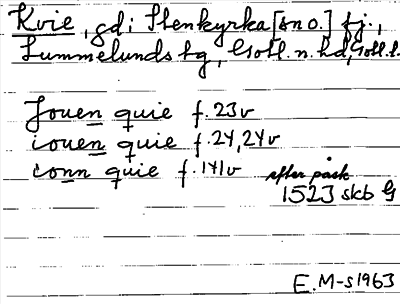 Kvie, gd i Stenkyrka [sn o.] fj.,
Lummelunds tg, Gotl. n. hd, Gotl. l.
Jouen quie f. 23v
iouen quie f. 24, 24v
ionn quie f. 141v
efter påsk
1523 skb G
E. M-s 1963